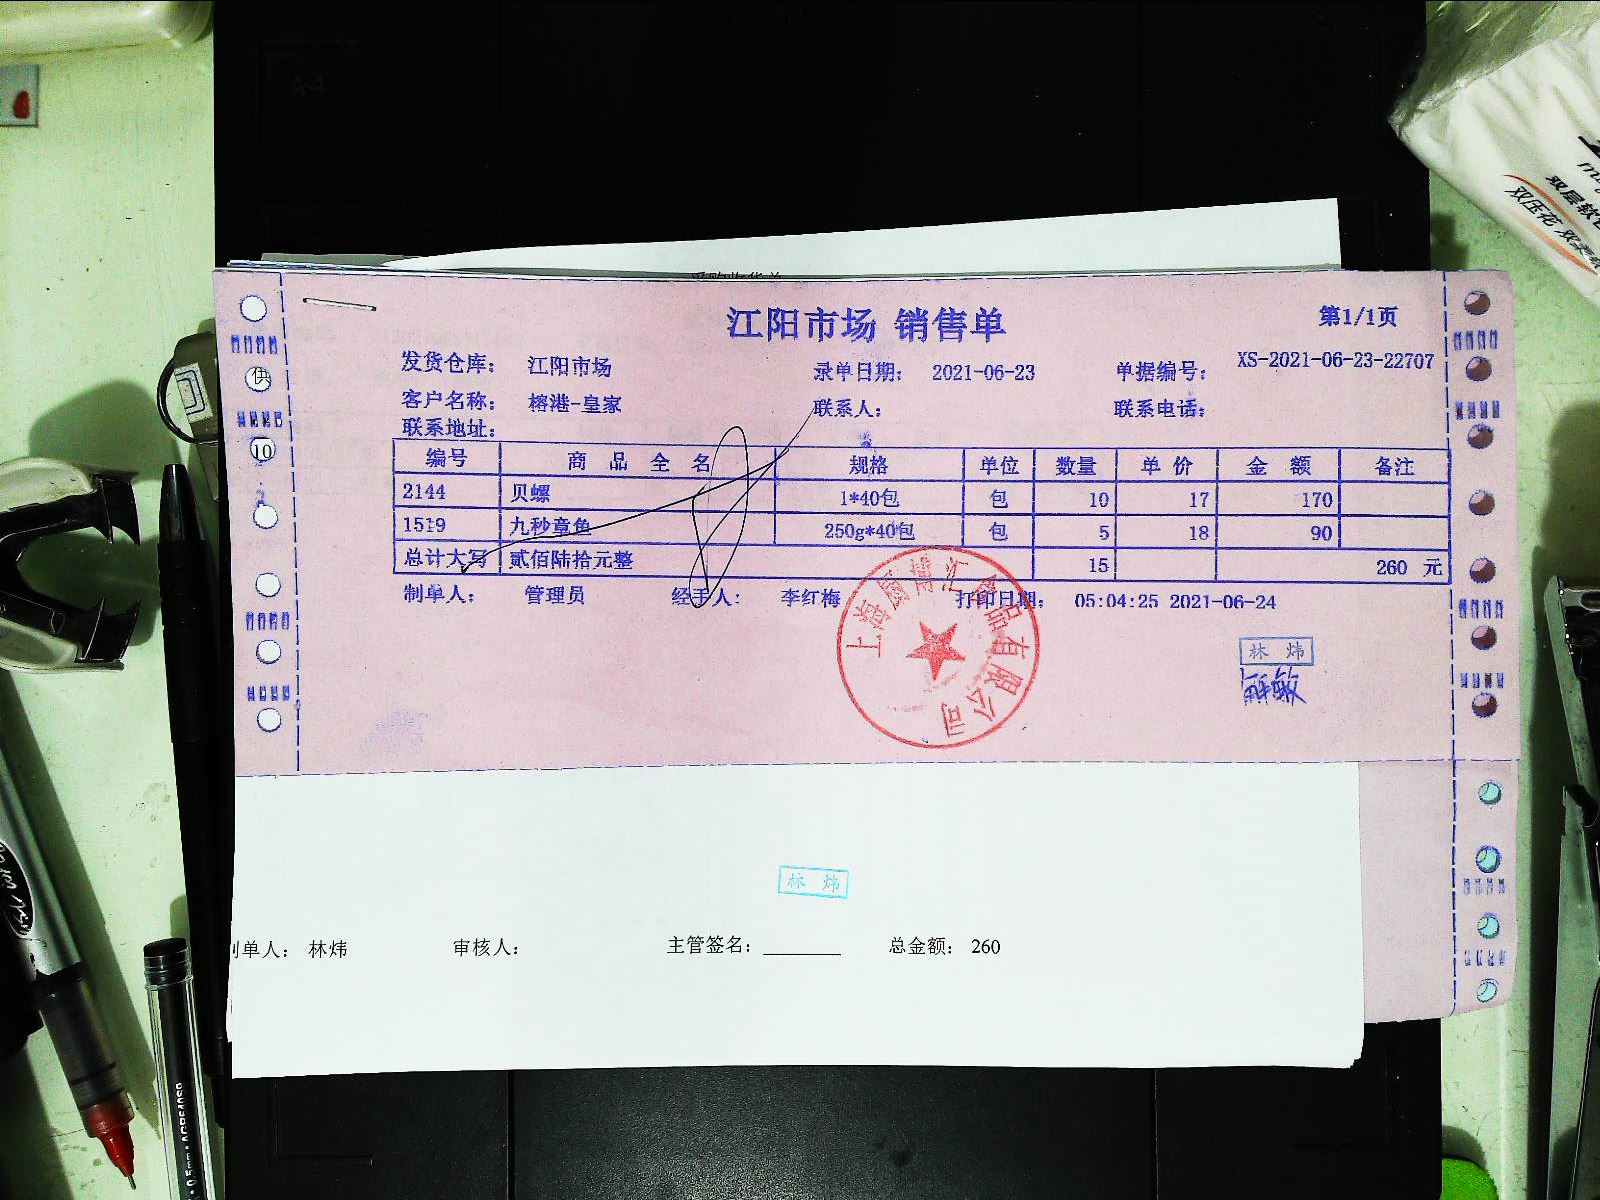 江阳市场 销售单
第1/1页
发货仓库： 江阳市场 录单日期： 2021-06-23 单据编号： XS-2021-06-23-22707
客户名称： 榕港-皇家 联系人： 联系电话：
联系地址：
编号 商品全名 规格 单位 数量 单价 金额 备注
2144 贝螺 1*40包 包 10 17 170
1519 九秒章鱼 250g*40包 包 5 18 90
总计大写 贰佰陆拾元整 15 260 元
制单人： 管理员 经手人： 李红梅 打印日期： 05:04:25 2021-06-24
上海厨博汇食品有限公司
林炜
供
10
林炜
制单人： 林炜 审核人： 主管签名： 总金额： 260
双层软
双压花